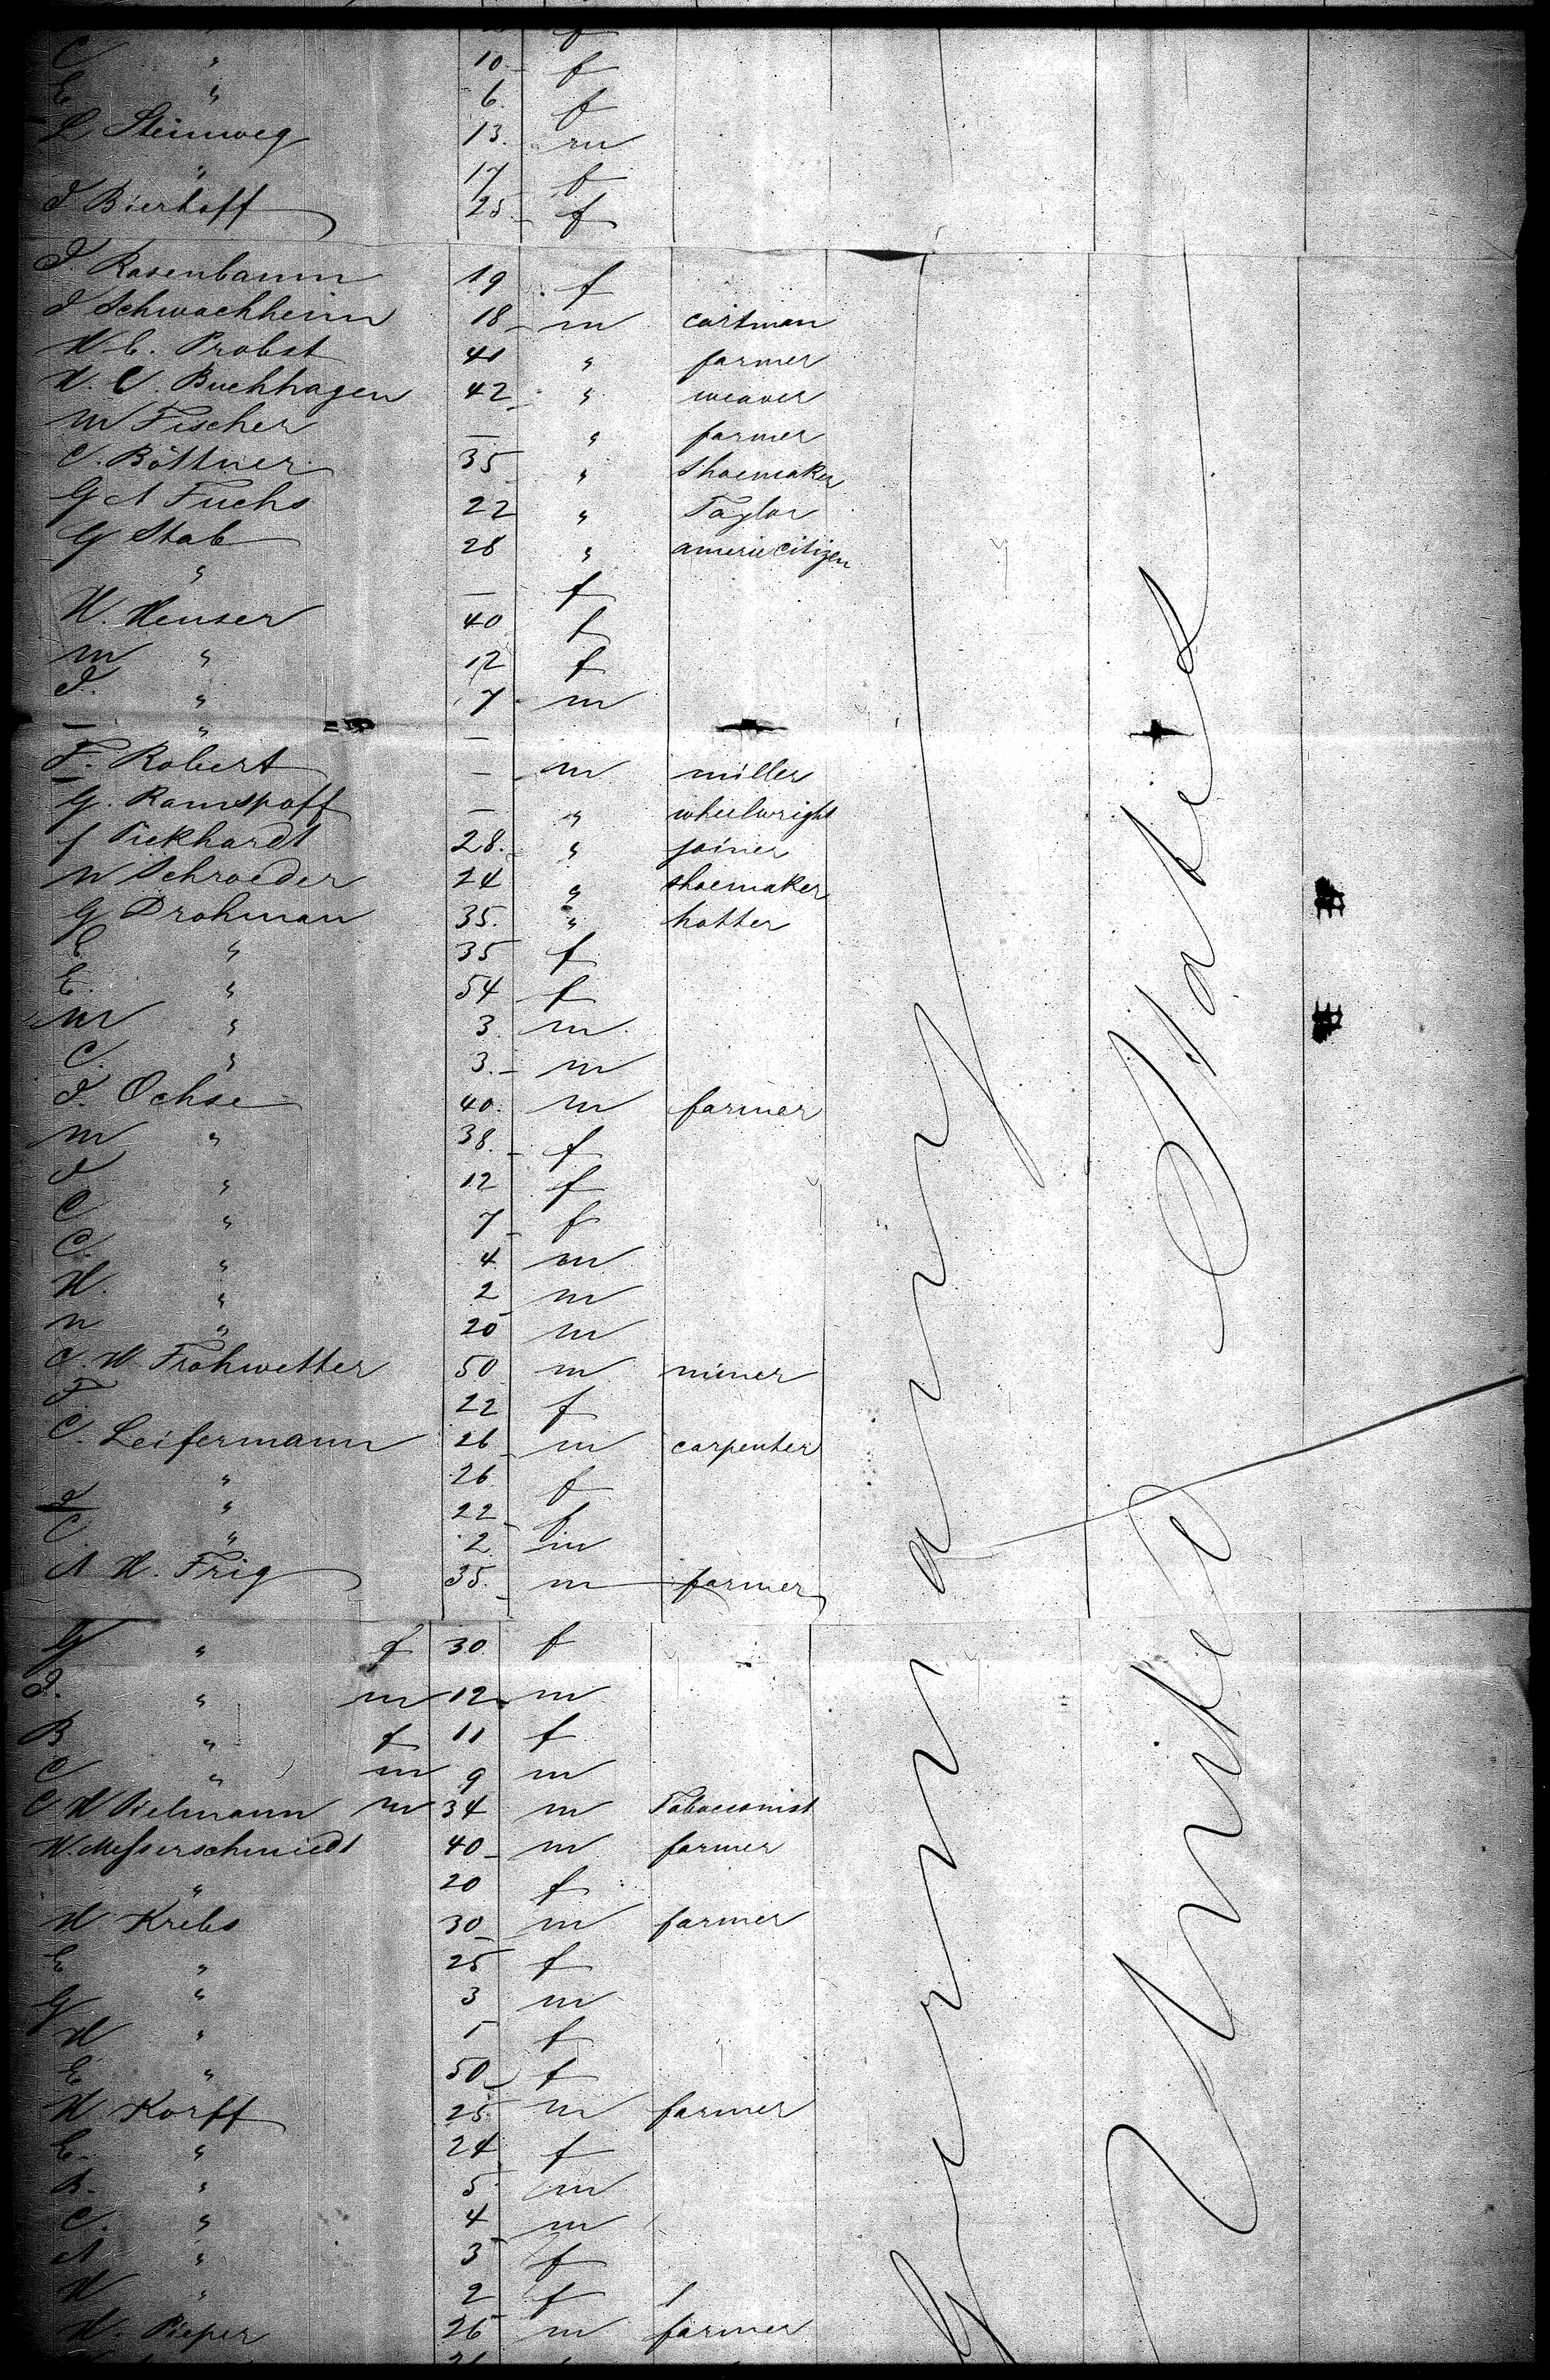 C " 10 f
E " 6. f
L Steinweg 13. m
" 17 f
J Bierhoff 25 f
J. Rosenbaum 19 f
J Schwachheim 18 m cartman
H C. Probst 41 " farmer
H. C. Buchhagen 42 " weaver
M Fischer — " farmer
C. Böttner 35 " Shoemaker
G A Fuchs 22 " Taylor
G Stab 28 " americ citizen
" — f
H. Heuser 40 f
M " 12 f
J. " 7 m
— " —
F. Robert — m miller
G. Ramspoff — " wheelwright
J Pickhardt 28. " joiner
W Schroeder 24 " shoemaker
G Drohman 35. " hatter
C " 35 f
E. " 54 f
M " 3. m
C. " 3. m
J. Ochse 40. m farmer
M " 38. f
J " 12 f
C " 7 f
C. " 4 m
H. " 2 m
N " 20 m
C. H Frohwetter 50 m miner
F. 22 f
C. Leifermann 26 m carpenter
" 26 f
" 22 f
C " 2 m
A H. Frig 35. m farmer
G " f 30. f
J. " m 12 m
B " f 11 f
C " m 9 m
C H Pielmann m 34 m Tobacconist
H. Messerschmiedt 40 m farmer
" 20 f
H Krebs 30 m farmer
E " 25 f
G " 3 m
H " 1 f
E " 50 f
H Korff 25 m farmer
E. " 24 f
B. " 5 m
C. " 4 m
A " 3 f
H " 2 f
H. Pieper 26 m farmer
Germany
United States